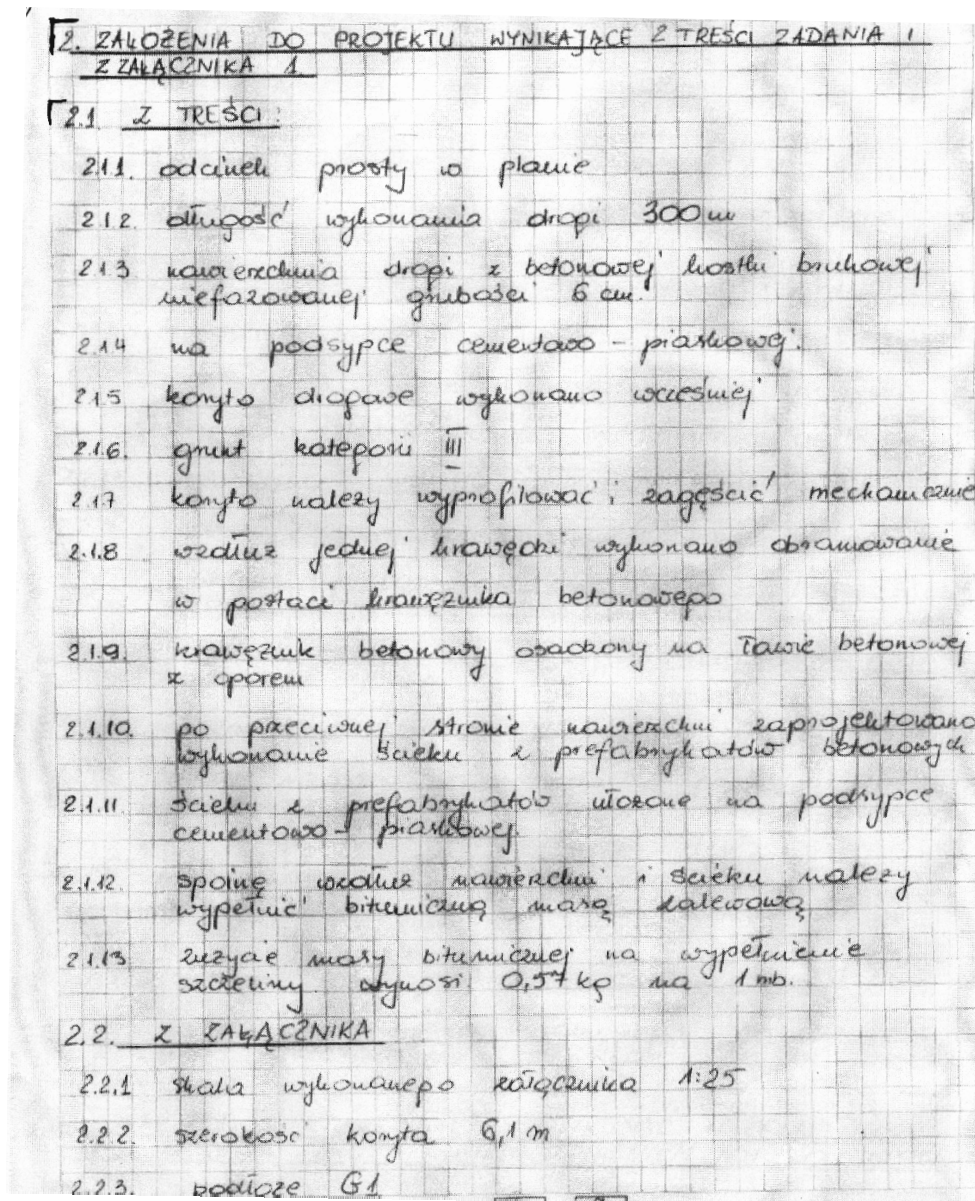 2. ZAŁOŻENIA DO PROJEKTU WYNIKAJĄCE Z TREŚCI ZADANIA I
Z ZAŁĄCZNIKA 1
2.1 Z TREŚCI:
2.1.1. odcinek prosty w planie
2.1.2. długość wykonania drogi 300 m
2.1.3 nawierzchnia drogi z betonowej kostki brukowej
niefazowanej grubości 6 cm.
2.1.4 na podsypce cementowo - piaskowej.
2.1.5 koryto drogowe wykonano wcześniej
2.1.6. grunt kategorii III
2.1.7 koryto należy wyprofilować i zagęścić mechanicznie
2.1.8 wzdłuż jednej krawędzi wykonano obramowanie
w postaci krawężnika betonowego
2.1.9. krawężnik betonowy osadzony na ławie betonowej
z oporem
2.1.10. po przeciwnej stronie nawierzchni zaprojektowano
wykonanie ścieku z prefabrykatów betonowych
2.1.11. ścieki z prefabrykatów ułożone na podsypce
cementowo - piaskowej.
2.1.12. spoinę wzdłuż nawierzchni i ścieku należy
wypełnić bitumiczną masą zalewową
2.1.13. zużycie masy bitumicznej na wypełnienie
szczeliny wynosi 0,57 kg na 1 mb.
2.2. Z ZAŁĄCZNIKA
2.2.1 skala wykonanego załącznika 1:25
2.2.2. szerokość koryta 6,1 m
2.2.3. podłoże G1